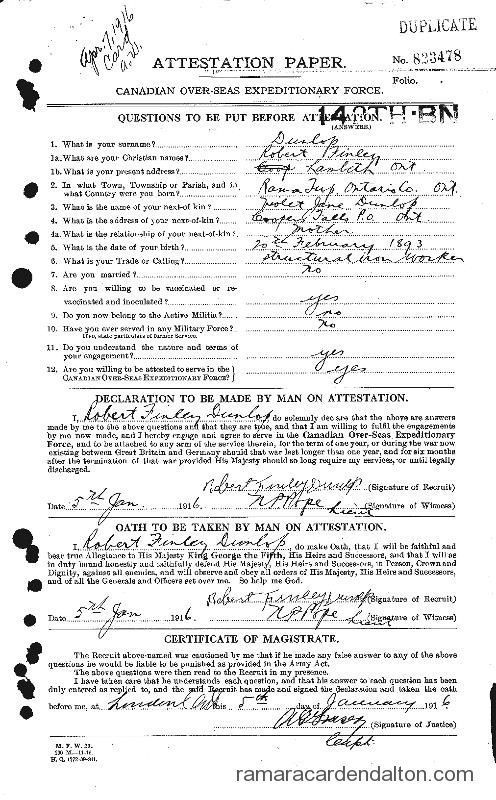 Apr. 7, 1916
Card
DUPLICATE
ATTESTATION PAPER.
No. 823478
Folio.
CANADIAN OVER-SEAS EXPEDITIONARY FORCE.
142TH-BN
QUESTIONS TO BE PUT BEFORE ATTESTATION.
(ANSWERS)
1. What is your surname? Dunlop
1a. What are your Christian names? Robert Finley
1b. What is your present address? Ont
2. In what Town, Township or Parish, and in what Country were you born? Rama Twp Ontario Co. Ont.
3. What is the name of your next-of kin? Jane Dunlop
4. What is the address of your next-of-kin? Coopers Falls P.O. Ont
4a. What is the relationship of your next-of-kin? Mother
5. What is the date of your birth? 20th February 1893
6. What is your Trade or Calling? Structural Iron Worker
7. Are you married? no
8. Are you willing to be vaccinated or re-
vaccinated and inoculated? yes
9. Do you now belong to the Active Militia? no
10. Have you ever served in any Military Force? no
If so, state particulars of former Service.
11. Do you understand the nature and terms of
your engagement? yes
12. Are you willing to be attested to serve in the
CANADIAN OVER-SEAS EXPEDITIONARY FORCE? yes
DECLARATION TO BE MADE BY MAN ON ATTESTATION.
I, Robert Finley Dunlop do solemnly declare that the above are answers
made by me to the above questions and that they are true, and that I am willing to fulfil the engagements
by me now made, and I hereby engage and agree to serve in the Canadian Over-Seas Expeditionary
Force, and to be attached to any arm of the service therein, for the term of one year, or during the war now
existing between Great Britain and Germany should that war last longer than one year, and for six months
after the termination of that war provided His Majesty should so long require my services, or until legally
discharged.
Robert Finley Dunlop (Signature of Recruit)
Date 5th Jan. 1916. Pope Lieut (Signature of Witness)
OATH TO BE TAKEN BY MAN ON ATTESTATION.
I, Robert Finley Dunlop, do make Oath, that I will be faithful and
bear true Allegiance to His Majesty King George the Fifth, His Heirs and Successors, and that I will as
in duty bound honestly and faithfully defend His Majesty, His Heirs and Successors, in Person, Crown and
Dignity, against all enemies, and will observe and obey all orders of His Majesty, His Heirs and Successors,
and of all the Generals and Officers set over me. So help me God.
Robert Finley Dunlop (Signature of Recruit)
Date 5th Jan 1916. Pope Lieut (Signature of Witness)
CERTIFICATE OF MAGISTRATE.
The Recruit above-named was cautioned by me that if he made any false answer to any of the above
questions he would be liable to be punished as provided in the Army Act.
The above questions were then read to the Recruit in my presence.
I have taken care that he understands each question, and that his answer to each question has been
duly entered as replied to, and the said Recruit has made and signed the declaration and taken the oath
before me, at London Ont this 5th day of January 1916
(Signature of Justice)
Capt.
M. F. W. 23.
ramaracardendalton.com